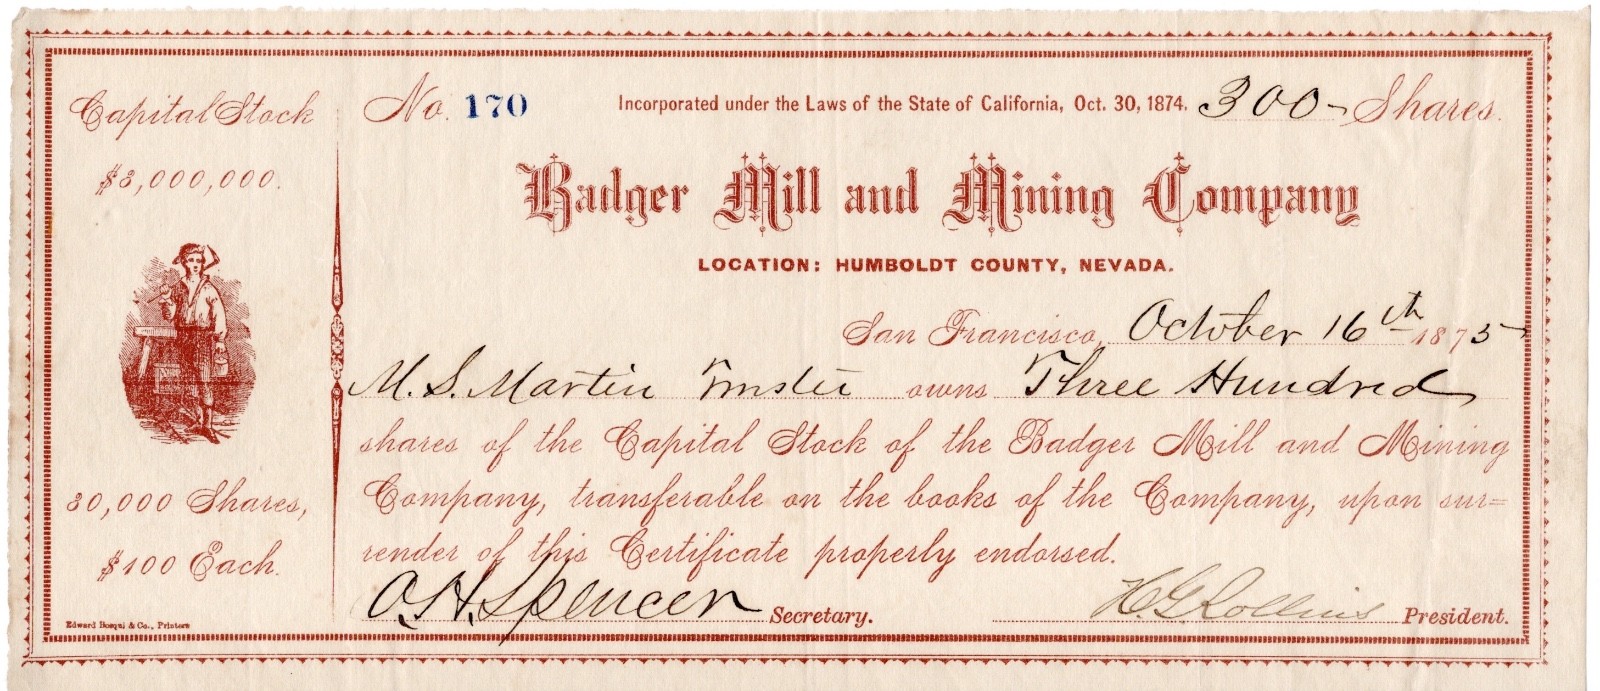 Capital Stock
$3,000,000.
30,000 Shares,
$100 Each.
Edward Bosqui & Co., Printers
No. 170 Incorporated under the Laws of the State of California, Oct. 30, 1874. 300 Shares.
Badger Mill and Mining Company
LOCATION: HUMBOLDT COUNTY, NEVADA.
San Francisco, October 16th 1875
M. S. Martin Trustee owns Three Hundred
shares of the Capital Stock of the Badger Mill and Mining
Company, transferable on the books of the Company, upon sur=
render of this Certificate properly endorsed.
O. H. Spencer Secretary. H G Rollins President.